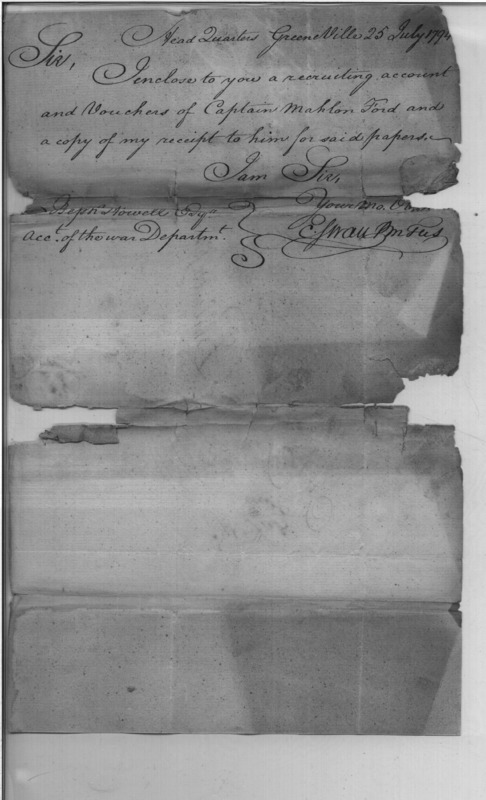 Head Quarters GreeneVille 25 July 1794
Sir,
I enclose to you a recruiting account
and Vouchers of Captain Mahlon Ford and
a copy of my receipt to him for said papers.
I am Sir,
Your Mo. Obt
Howell Esqr.
acct. of the war Departmt.
C Swan PmTUS